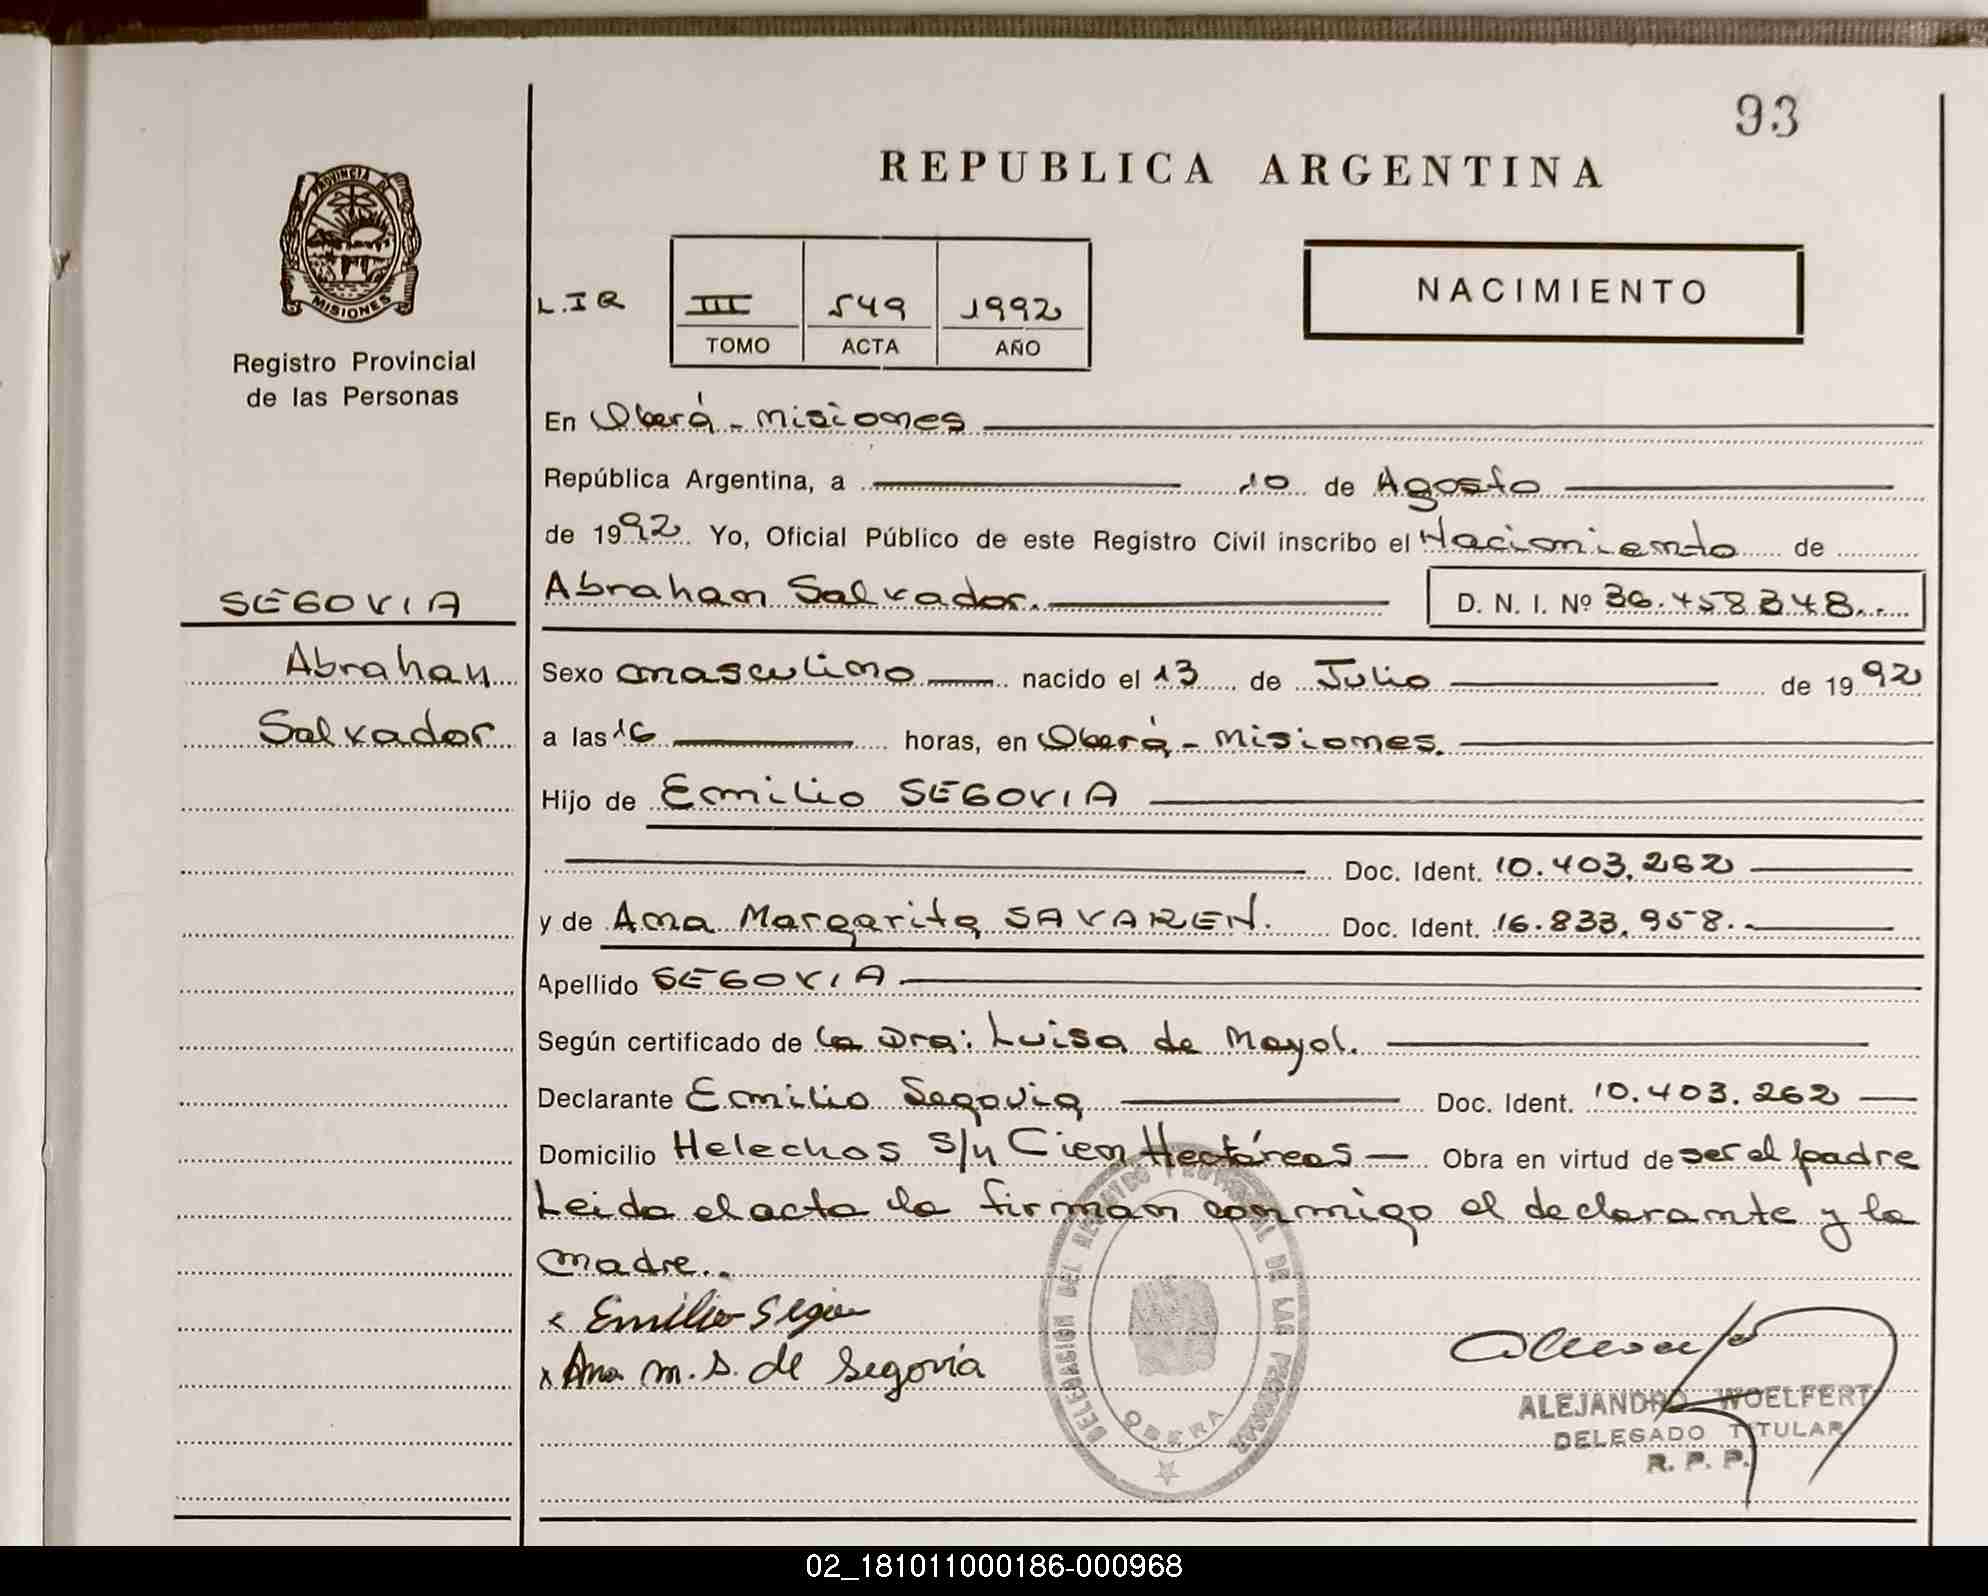 93
REPUBLICA ARGENTINA
PROVINCIA DE
MISIONES
Registro Provincial
de las Personas
L.I.R
III 549 1992
TOMO ACTA AÑO
NACIMIENTO
En Oberá - Misiones
República Argentina, a 10 de Agosto
de 1992 Yo, Oficial Público de este Registro Civil inscribo el Nacimiento de
Abraham Salvador. D. N. I. Nº 36.458.348..
SEGOVIA
Abrahan
Salvador
Sexo masculino nacido el 13 de Julio de 1992
a las 16 horas, en Oberá - Misiones.
Hijo de Emilio SEGOVIA
Doc. Ident. 10.403.262
y de Ana Margarita SAVAREN. Doc. Ident. 16.833.958.
Apellido SEGOVIA
Según certificado de la Dra: Luisa de Mayol.
Declarante Emilio Segovia Doc. Ident. 10.403.262
Domicilio Helechos S/n Cien Hectáreas Obra en virtud de ser el padre
Leida el acta la firman conmigo el declarante y la
madre..
x Emilio Segovia
x Ana m. S. de Segovia
DELEGACION DEL REGISTRO PROVINCIAL DE LAS PERSONAS
OBERA
ALEJANDRO WOELFERT
DELEGADO TITULAR
R. P. P.
02_181011000186-000968